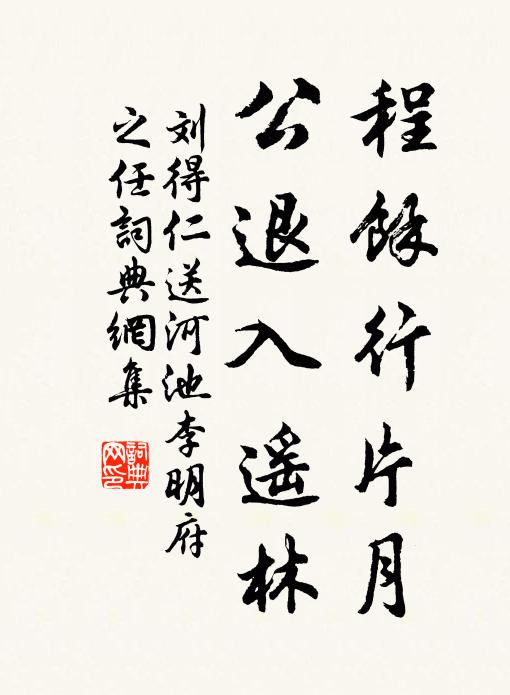 程餘行片月
公退入遥林
刘得仁送河池李明府
之任詞典網集
詞典
网印